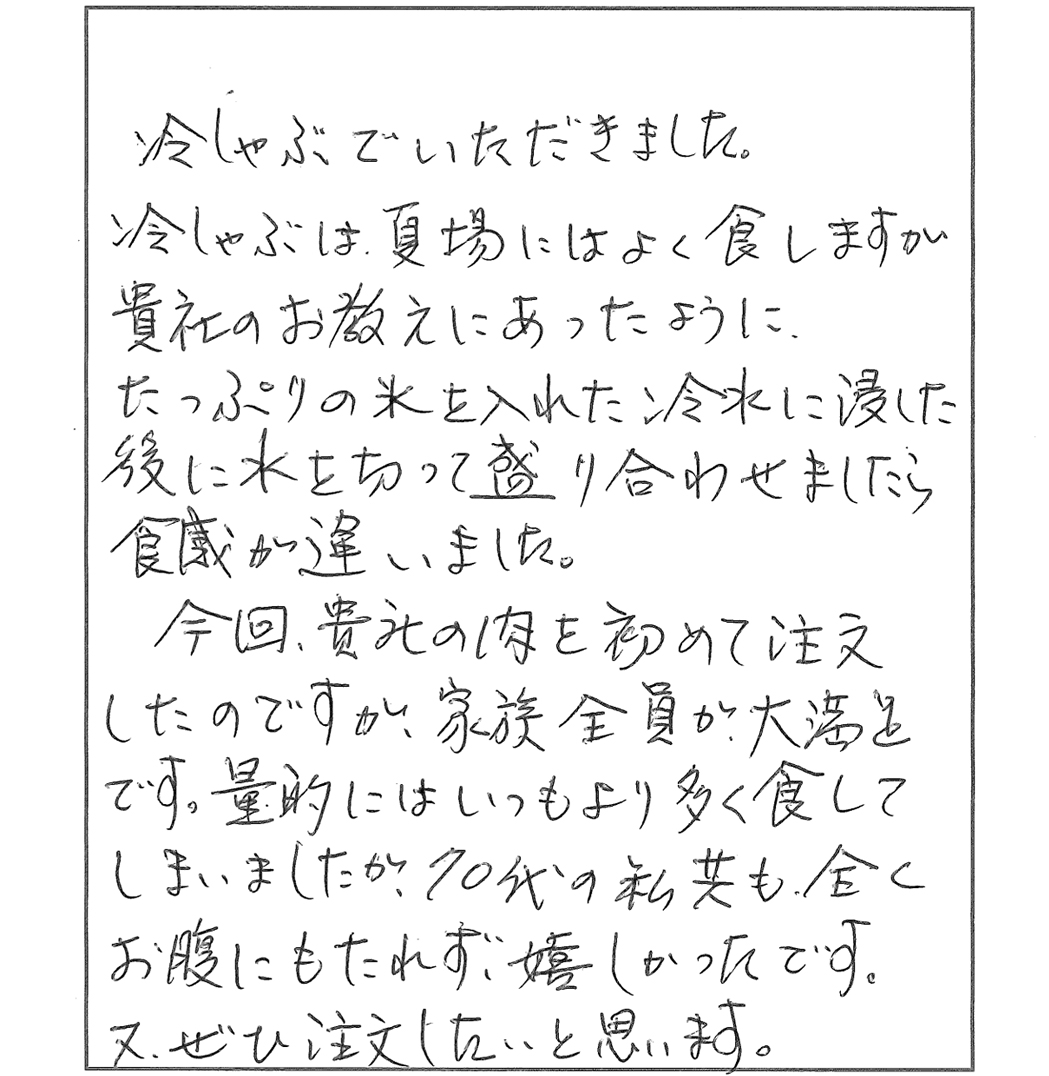 冷しゃぶでいただきました。
冷しゃぶは、夏場にはよく食しますが
貴社のお教えにあったように、
たっぷりの氷を入れた冷水に浸した
後に水を切って盛り合わせましたら
食感が違いました。
今回、貴社の肉を初めて注文
したのですが、家族全員が大満足
です。量的にはいつもより多く食して
しまいましたが、70代の私共も、全く
お腹にもたれず、嬉しかったです。
又、ぜひ注文したいと思います。